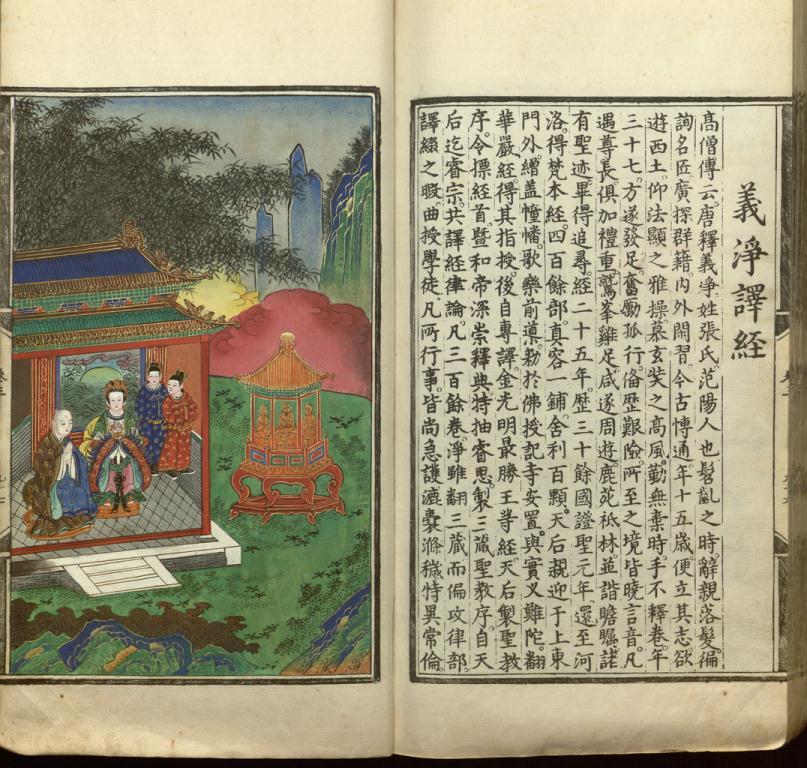 義淨譯経
髙僧傳云。唐釋義淨。姓張氏。范陽人也。髫齓之時。辭親落髮。徧
詢名匠。廣探群籍。内外閑習。今古愽通。年十五歳。便立其志。欲
遊西土。仰法顯之雅操。慕玄奘之髙風。勤無棄時。手不釋卷。年
三十七。方遂發足。奮勵孤行。俻歴艱險。所至之境。皆曉言音。凡
遇尊長。俱加禮重。鷲峯雞足。咸遂周遊。鹿苑祇林。並諧瞻矚。諸
有聖迹。畢得追尋。經二十五年。歴三十餘國。證聖元年。還至河
洛。得梵本經。四百餘部。真容一鋪。舍利百顆。天后親迎于上東
門外。繒盖幢幡。歌樂前導。勅於佛授記寺安置。與實叉難陀。翻
華嚴經。得其指授。後自專譯。金光明最勝王等經。天后製聖教
序。令摽經首。暨和帝深崇釋典。特抽睿思。製三蔵聖教序。自天
后迄睿宗。共譯経律論。凡三百餘卷。淨雖翻三蔵。而偏攻律部。
譯綴之暇。曲授學徒。凡所行事。皆尚急護。漉囊滌穢。特異常倫。